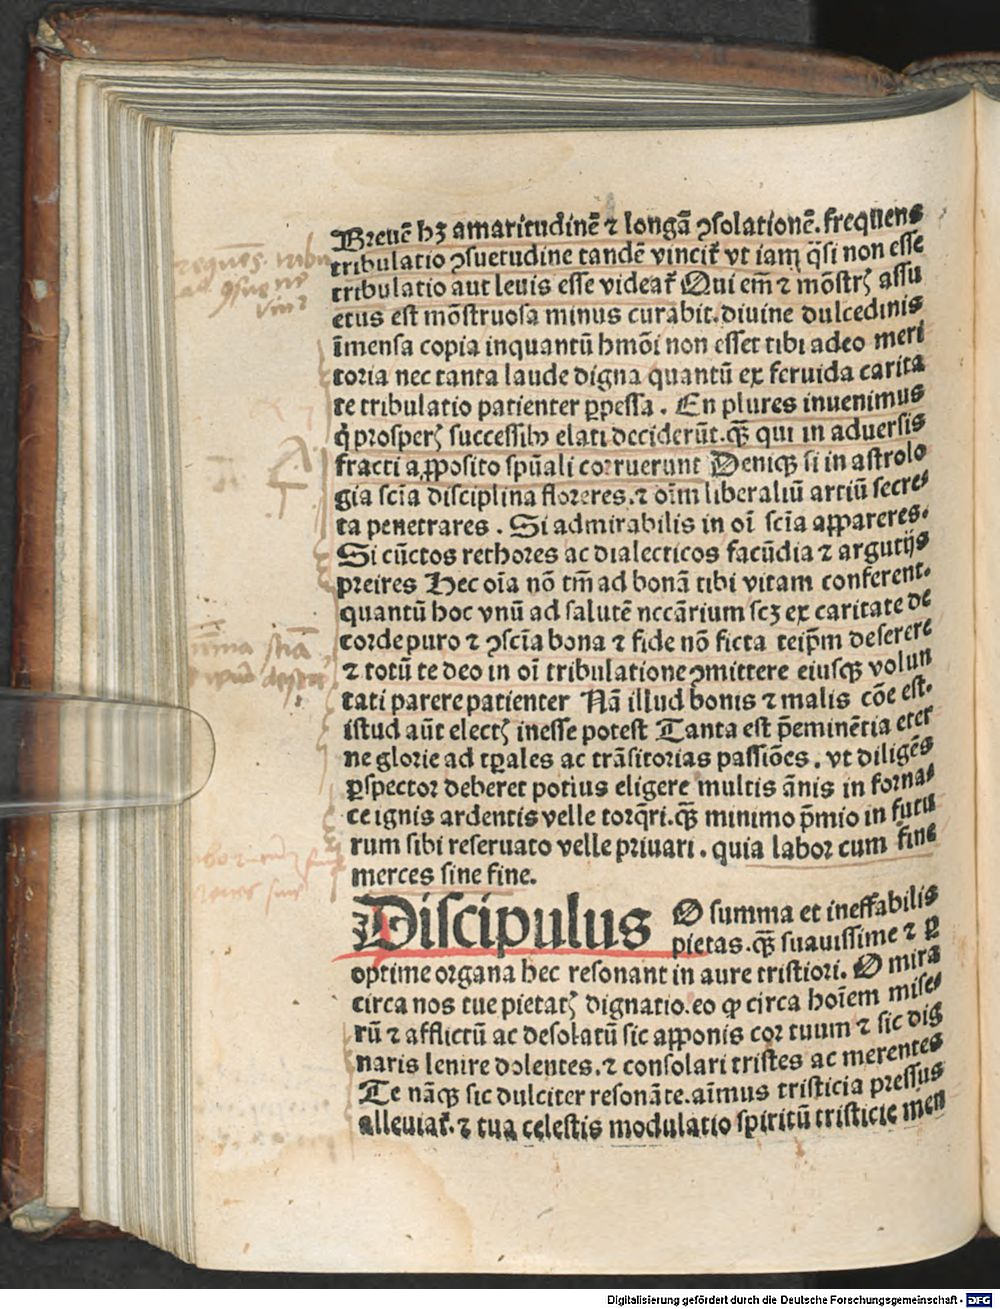 Breuē hʒ amaritudinē ⁊ longā ꝯsolationē. frequens
tribulatio ꝯsuetudine tandē vincit᷑ vt iam q̄si non esse
tribulatio aut leuis esse videat᷑ Qui em̄ ⁊ mōstrꝭ assu
etus est mōstruosa minus curabit. diuine dulcedinis
īmensa copia inquantū hmōi non esset tibi adeo meri
toria nec tanta laude digna quantū ex feruida carita
te tribulatio patienter ꝑpessa. En plures inuenimus
q̇ prosperꝭ successibꝰ elati deciderūt. qꝫ̄ qui in aduersis
fracti a ꝓposito spūali corruerunt Deniqꝫ si in astrolo
gia scīa disciplina floreres. ⁊ oīm liberaliū artiū secre⸗
ta penetrares. Si admirabilis in oī scīa appareres.
Si cūctos rethores ac dialecticos facūdia ⁊ argutijs
preires Hec oīa nō tm̄ ad bonā tibi vitam conferent.
quantū hoc vnū ad salutē nccārium scꝫ ex caritate de
corde puro ⁊ ꝯscīa bona ⁊ fide nō ficta teip̄m deserere
⁊ totū te deo in oī tribulatione ꝯmittere eiusqꝫ volun
tati parere patienter Nā illud bonis ⁊ malis cōe est.
istud aūt electꝭ inesse potest Tanta est p̄eminētia eter
ne glorie ad tꝑales ac trāsitorias passiōes. vt diligēs
ꝑspector deberet potius eligere multis ānis in forna⸗
ce ignis ardentis velle torq̄ri. qꝫ̄ minimo p̄mio in futu
rum sibi reseruato velle priuari. quia labor cum fine
merces sine fine.
Discipulus O summa et ineffabilis
pietas. qꝫ̄ suauissime ⁊ ꝑ
optime organa hec resonant in aure tristiori. O mira
circa nos tue pietatꝭ dignatio. eo ꝙ circa hoīem mise⸗
rū ⁊ afflictū ac desolatū sic apponis cor tuum ⁊ sic dig
naris lenire dolentes. ⁊ consolari tristes ac merentes
Te nāqꝫ sic dulciter resonāte. aīmus tristicia pressus
alleuiat᷑. ⁊ tua celestis modulatio spiritū tristicie men
Digitalisierung gefördert durch die Deutsche Forschungsgemeinschaft - DFG